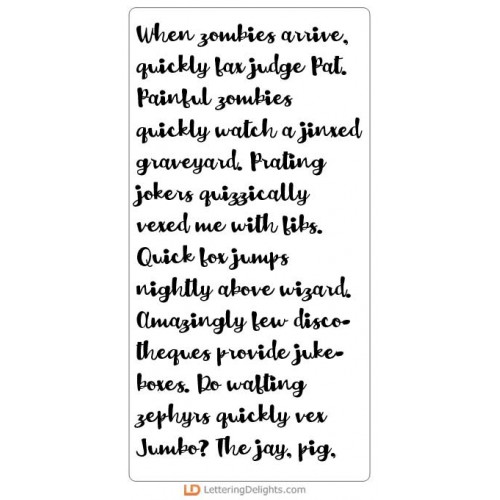 When zombies arrive,
quickly fax judge Pat.
Painful zombies
quickly watch a jinxed
graveyard. Prating
jokers quizzically
vexed me with fibs.
Quick fox jumps
nightly above wizard.
Amazingly few disco-
theques provide juke-
boxes. Do wafting
zephyrs quickly vex
Jumbo? The jay, pig,
LD LetteringDelights.com